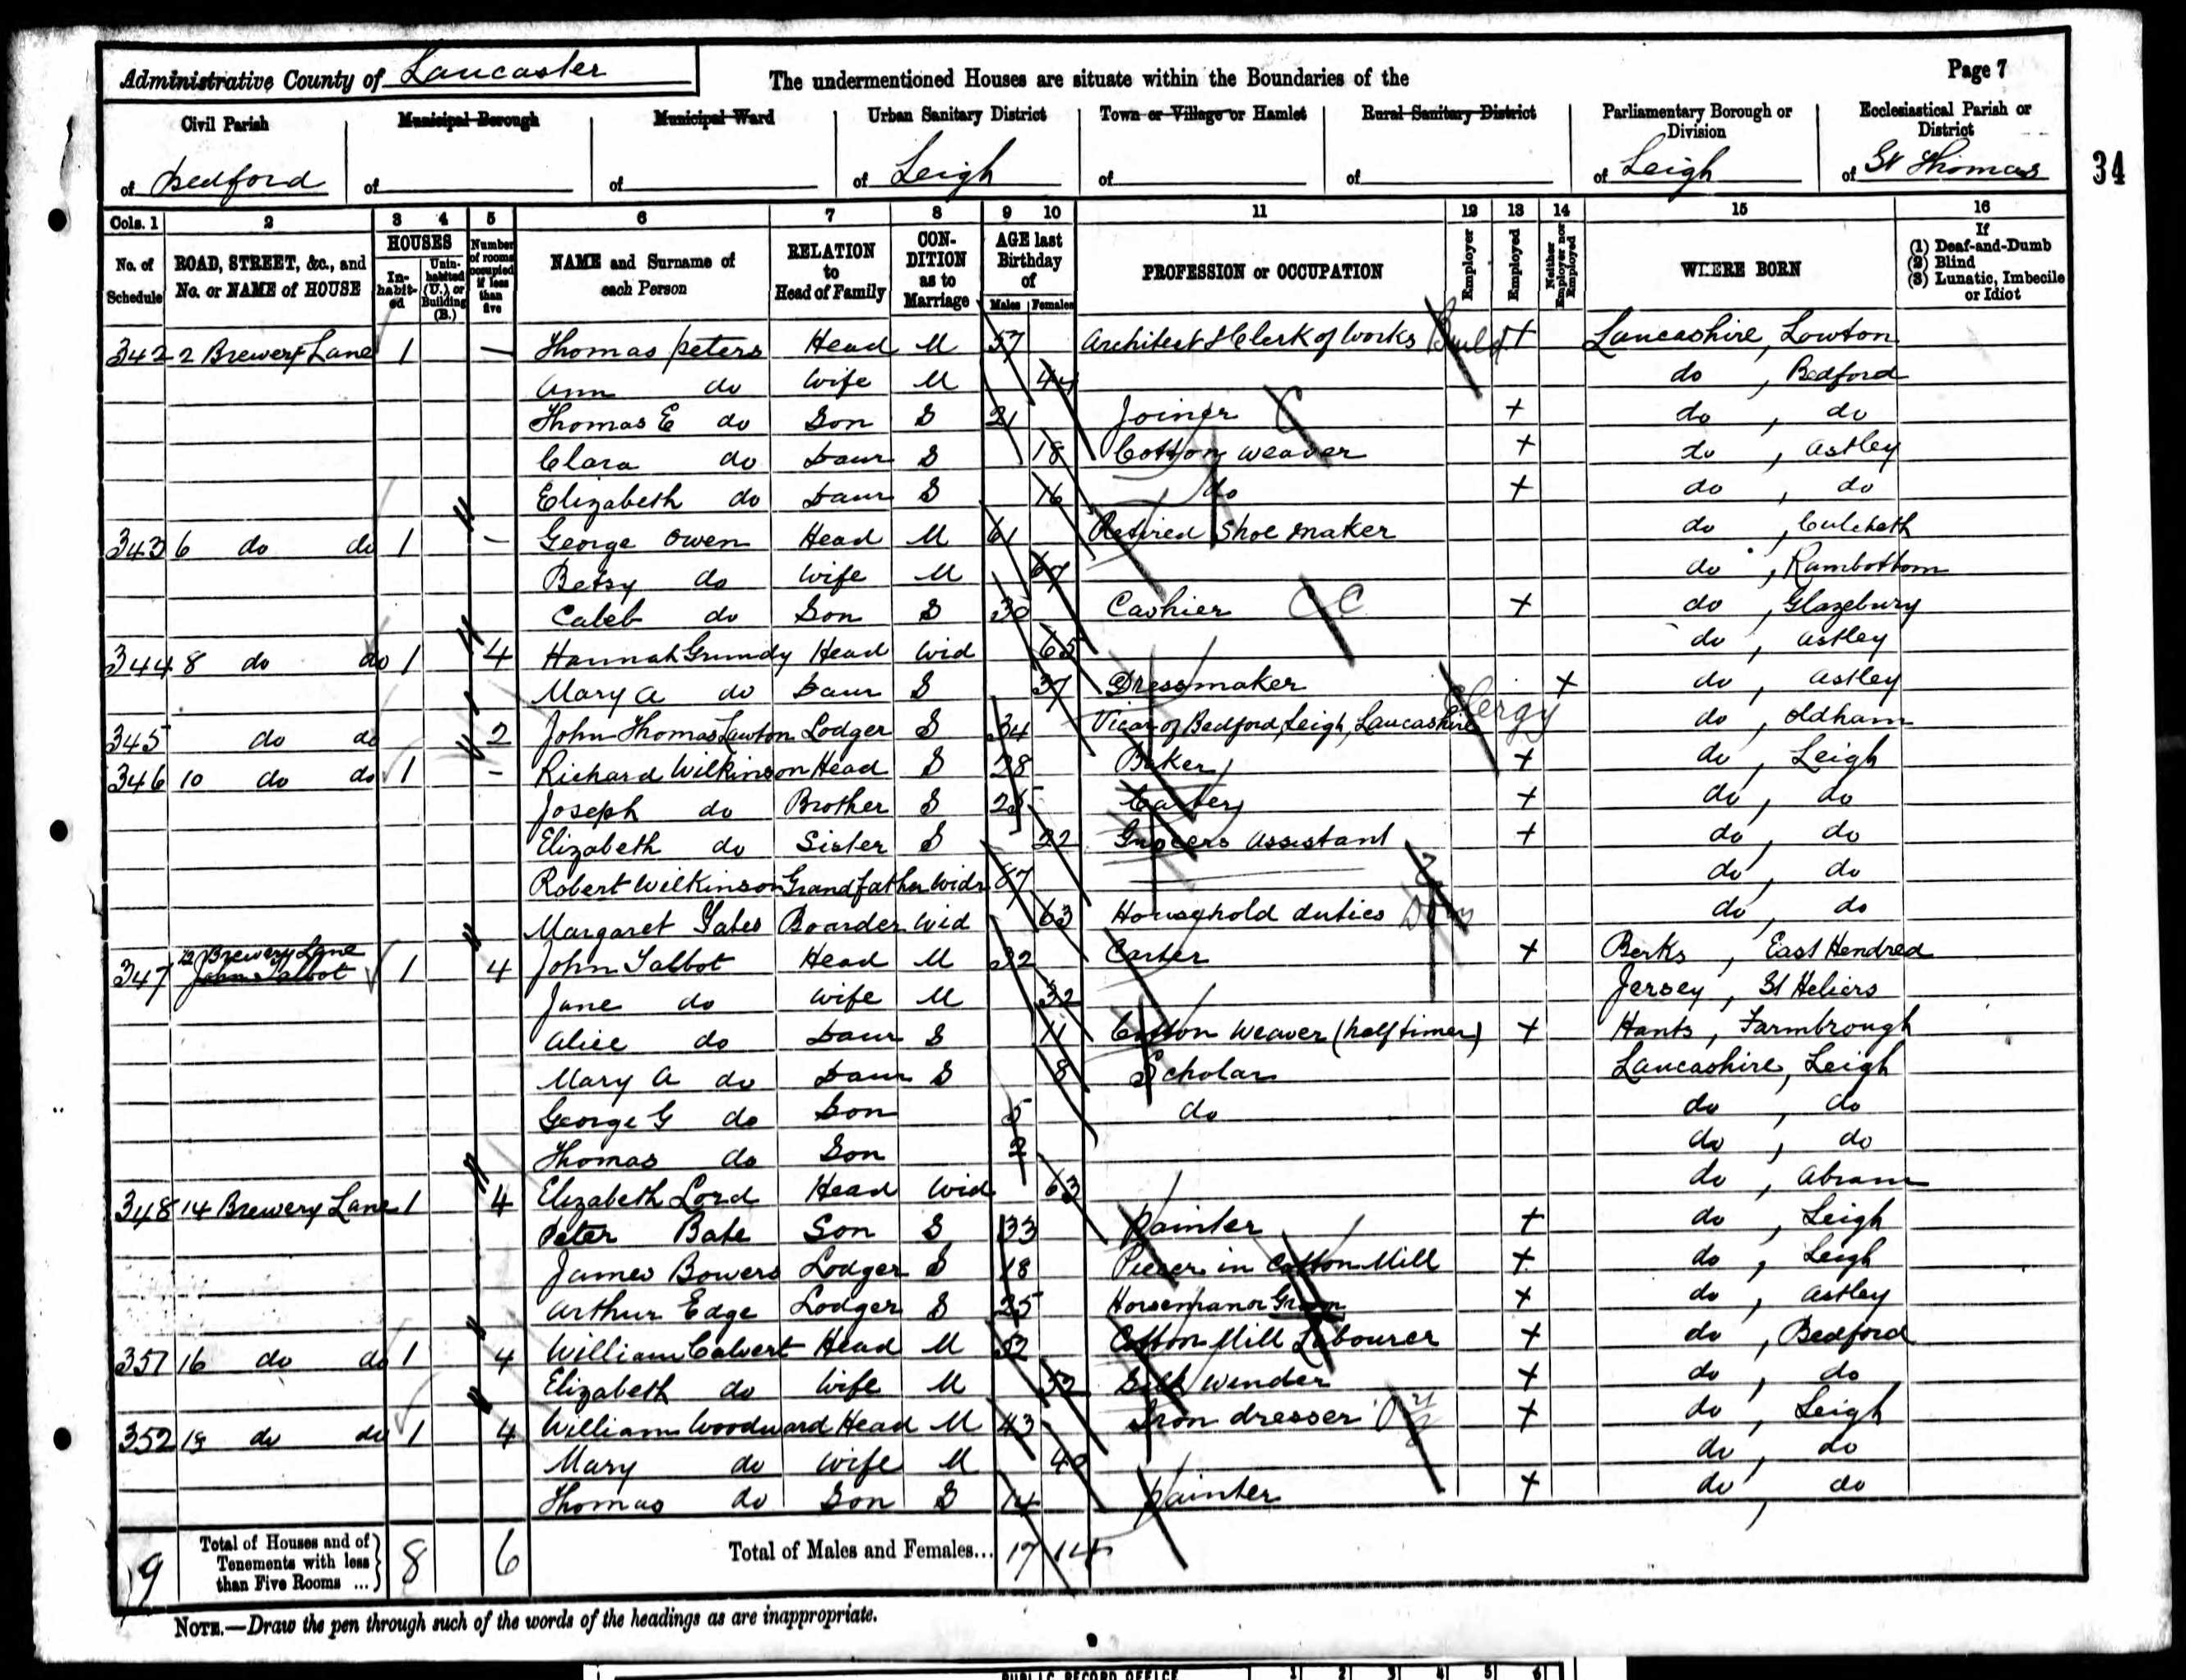 Administrative County of Lancaster
The undermentioned Houses are situate within the Boundaries of the
Page 7
Civil Parish of Bedford
Municipal Borough of
Municipal Ward of
Urban Sanitary District of Leigh
Town or Village or Hamlet of
Rural Sanitary District of
Parliamentary Borough or Division of Leigh
Ecclesiastical Parish or District of St Thomas
34
Cols. 1 2 3 4 5 6 7 8 9 10 11 12 13 14 15 16
No. of Schedule
ROAD, STREET, &c., and No. or NAME of HOUSE
HOUSES
In-habit-ed
Unin-habited (U.) or Building (B.)
Number of rooms occupied if less than five
NAME and Surname of each Person
RELATION to Head of Family
CON-DITION as to Marriage
AGE last Birthday of
Males Females
PROFESSION or OCCUPATION
Employer
Employed
Neither Employer nor Employed
WHERE BORN
If (1) Deaf-and-Dumb (2) Blind (3) Lunatic, Imbecile or Idiot
342 2 Brewery Lane 1 — Thomas Peters Head M 57 Architect & Clerk of Works + Lancashire, Lowton
Ann do Wife M 44 do, Bedford
Thomas E do Son S 21 Joiner C + do, do
Clara do Daur S 18 Cotton weaver + do, Astley
Elizabeth do Daur S 16 do + do, do
343 6 do do 1 – George Owen Head M 61 Retired Shoe maker do, Culcheth
Betsy do Wife M do, Rambottom
Caleb do Son S 30 Cashier C C + do, Glazebury
344 8 do do 1 4 Hannah Grundy Head Wid 65 do, Astley
Mary A do Daur S 37 Dressmaker + do, Astley
345 do do 2 John Thomas Lawton Lodger S 34 Vicar of Bedford, Leigh, Lancashire Clergy do, Oldham
346 10 do do 1 – Richard Wilkinson Head S 28 Baker + do, Leigh
Joseph do Brother S 25 Carter + do, do
Elizabeth do Sister S 22 Grocers Assistant + do, do
Robert Wilkinson Grandfather Widr 87 do, do
Margaret Yates Boarder Wid 63 Household duties do, do
347 12 Brewery Lane John Talbot 1 4 John Talbot Head M 32 Carter + Berks, East Hendred
Jane do Wife M 32 Jersey, St Heliers
Alice do Daur S 11 Cotton Weaver (half timer) + Hants, Farmbrough
Mary A do Daur S 8 Scholar Lancashire, Leigh
George G do Son 5 do do, do
Thomas do Son 2 do, do
348 14 Brewery Lane 1 4 Elizabeth Lord Head Wid 63 do, Abram
Peter Bate Son S 33 Painter + do, Leigh
James Bowers Lodger S 18 Piecer in Cotton Mill + do, Leigh
Arthur Edge Lodger S 25 Horseman or Groom + do, Astley
351 16 do do 1 4 William Calvert Head M 52 Cotton Mill Labourer + do, Bedford
Elizabeth do Wife M 52 Silk Winder + do, do
352 18 do do 1 4 William Woodward Head M 43 Iron dresser + do, Leigh
Mary do Wife M 40 do, do
Thomas do Son S 14 Painter + do, do
9 Total of Houses and of Tenements with less than Five Rooms ... 8 6 Total of Males and Females... 17 14
NOTE.—Draw the pen through such of the words of the headings as are inappropriate.
PUBLIC RECORD OFFICE 1 2 3 4 5 6